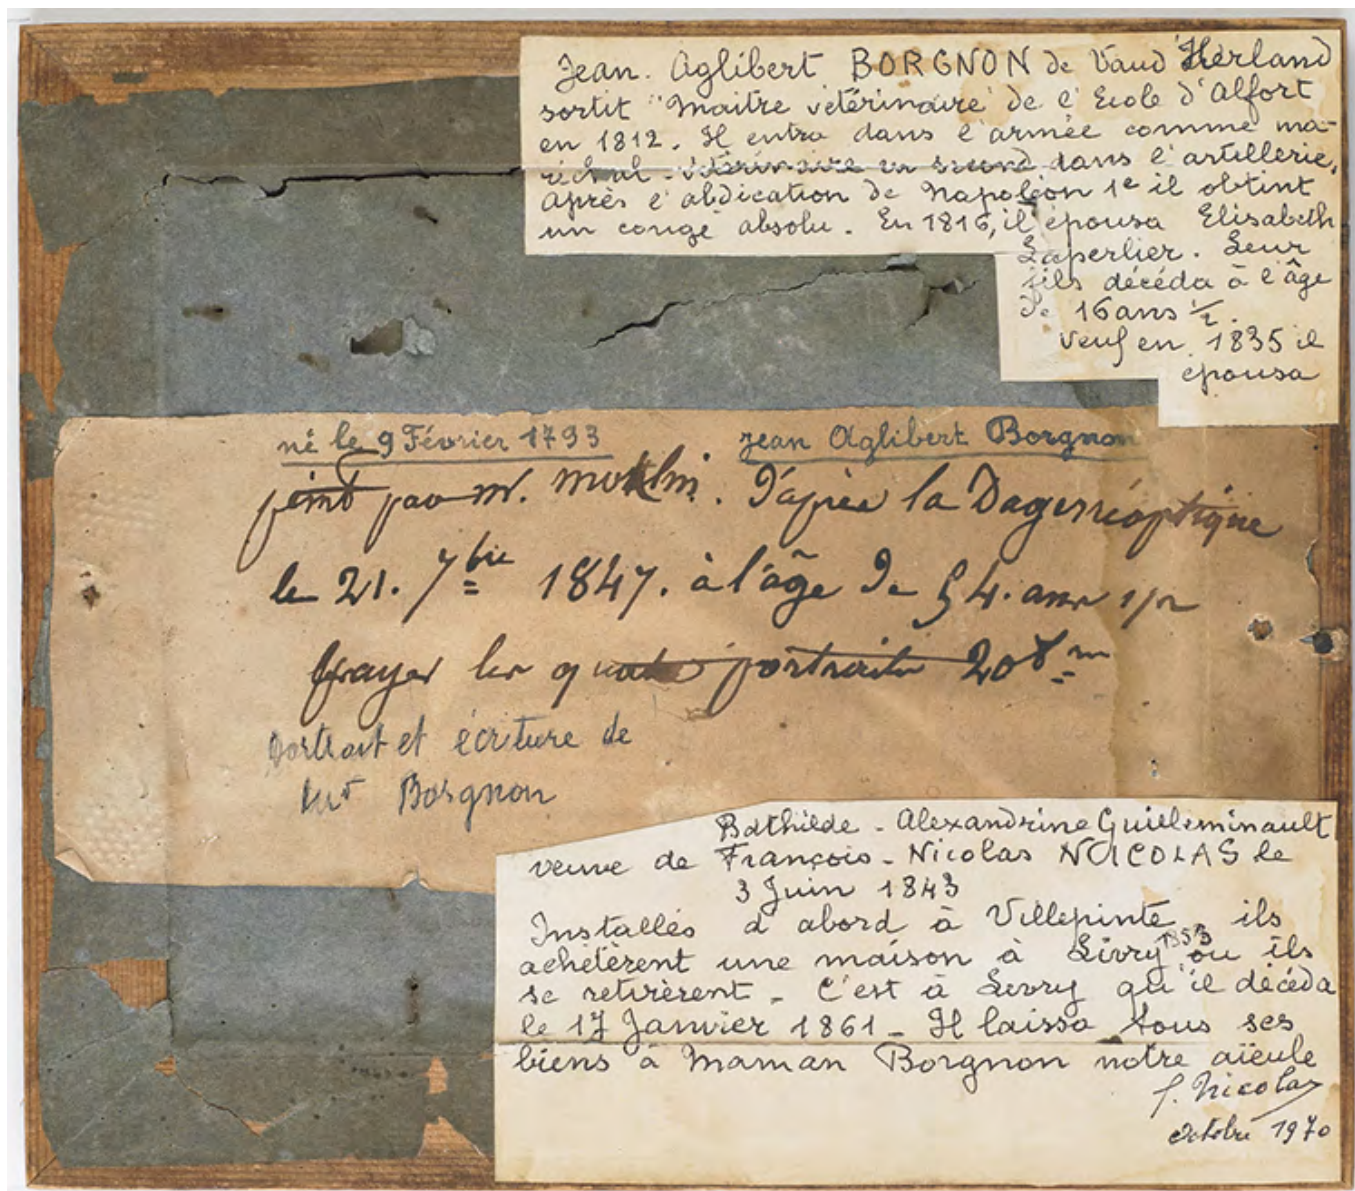 Jean. Aglibert BORGNON de Vaud'Herland
sortit "Maitre vétérinaire" de l'Ecole d'Alfort
en 1812. Il entra dans l'armée comme ma-
réchal-vétérinaire en second dans l'artillerie.
Après l'abdication de Napoléon 1e il obtint
un congé absolu. En 1816, il épousa Elisabeth
Laperlier. Leur
fils décéda à l'âge
de 16 ans 1/2.
Veuf en 1835 il
épousa
né le 9 Février 1793 Jean Aglibert Borgnon
peint par Mr. . D'après la Dagerréoptique
le 21. 7bre 1847. à l'âge De 54. ans 1/2
frayer les quatre portraits 208
Portrait et écriture de
Mr Borgnon
Bathilde - Alexandrine Guilleminault
veuve de François - Nicolas NOICOLAS le
3 Juin 1843
Installés d'abord à Villepinte, ils
achetèrent une maison à Livry 1853 ou ils
se retirèrent - C'est à Livry qu'il décéda
le 17 Janvier 1861 - Il laissa tous ses
biens à Maman Borgnon notre aïeule
Nicolas
octobre 1970